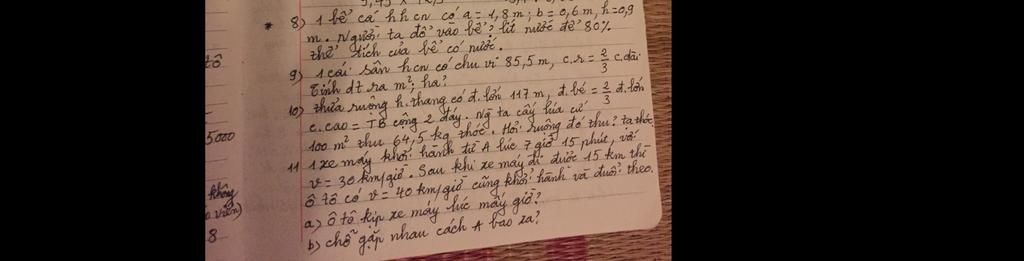 * 8) 1 bể cá h h cn có a = 1,8 m ; b = 0,6 m, h = 0,9
m. Người ta đổ vào bể ? lít nước để 80%
thể tích của bể có nước.
tô
9) 1 cái sân h cn có chu vi 85,5 m, c.r = 2/3 c.dài
Tính dt ra m²; ha?
10) thửa ruộng h.thang có đ.lớn 117 m, đ.bé = 2/3 đ.lớn
c.cao = TB cộng 2 đáy. Ng ta cấy lúa cứ
100 m² thu 64,5 kg thóc. Hỏi ruộng đó thu ? tạ thóc
5000
11 1 xe máy khởi hành từ A lúc 7 giờ 15 phút, với
v = 30 km/giờ. Sau khi xe máy đi được 15 km thì
ô tô có v = 40 km/giờ cũng khởi hành và đuổi theo.
không
a) ô tô kịp xe máy lúc mấy giờ?
viên)
b) chỗ gặp nhau cách A bao xa?
8